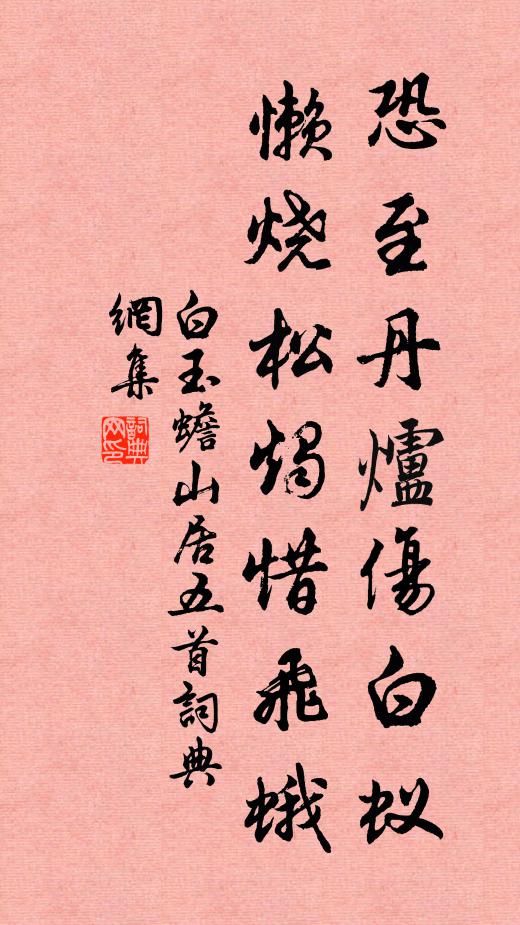 恐至丹爐傷白蚁
懒烧松燭惜飛蛾
白玉蟾山居五首詞典
網集
詞典網印